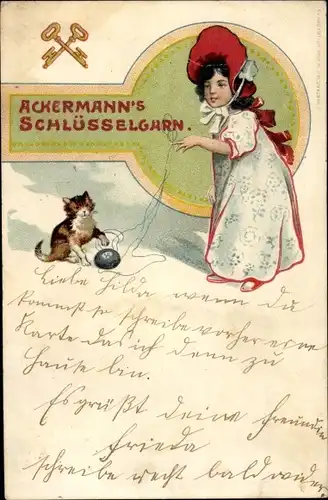 ACKERMANN'S
SCHLÜSSELGARN.
Liebe Hilda wenn du
kommst so schreibe vorher eine
Karte das ich denn zu
Hause bin.
Es grüßt deine Freundin
Frieda
schreibe recht bald wider